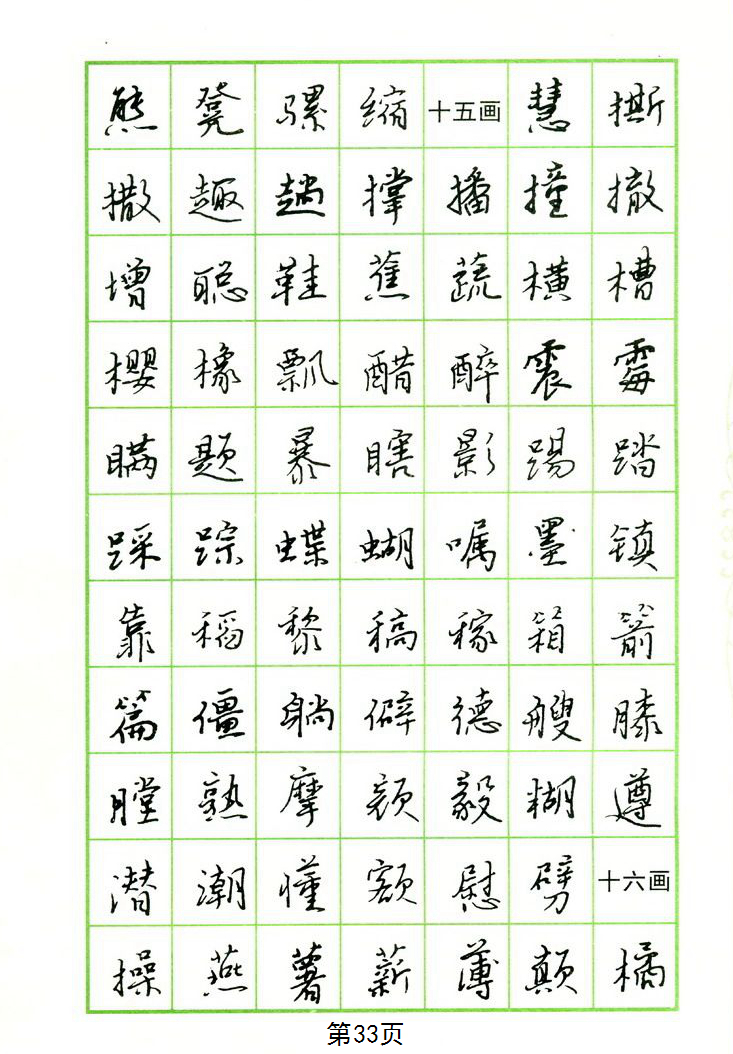 熊凳骡缩十五画慧撕
撒趣趟撑播撞撤
增聪鞋蕉蔬横槽
樱橡飘醋醉震霉
瞒题暴瞎影踢踏
踩踪蝶蝴嘱墨镇
靠稻黎稿稼箱箭
篇僵躺僻德艘膝
膛熟摩颜毅糊遵
潜潮懂额慰劈十六画
操燕薯薪薄颠橘
第33页